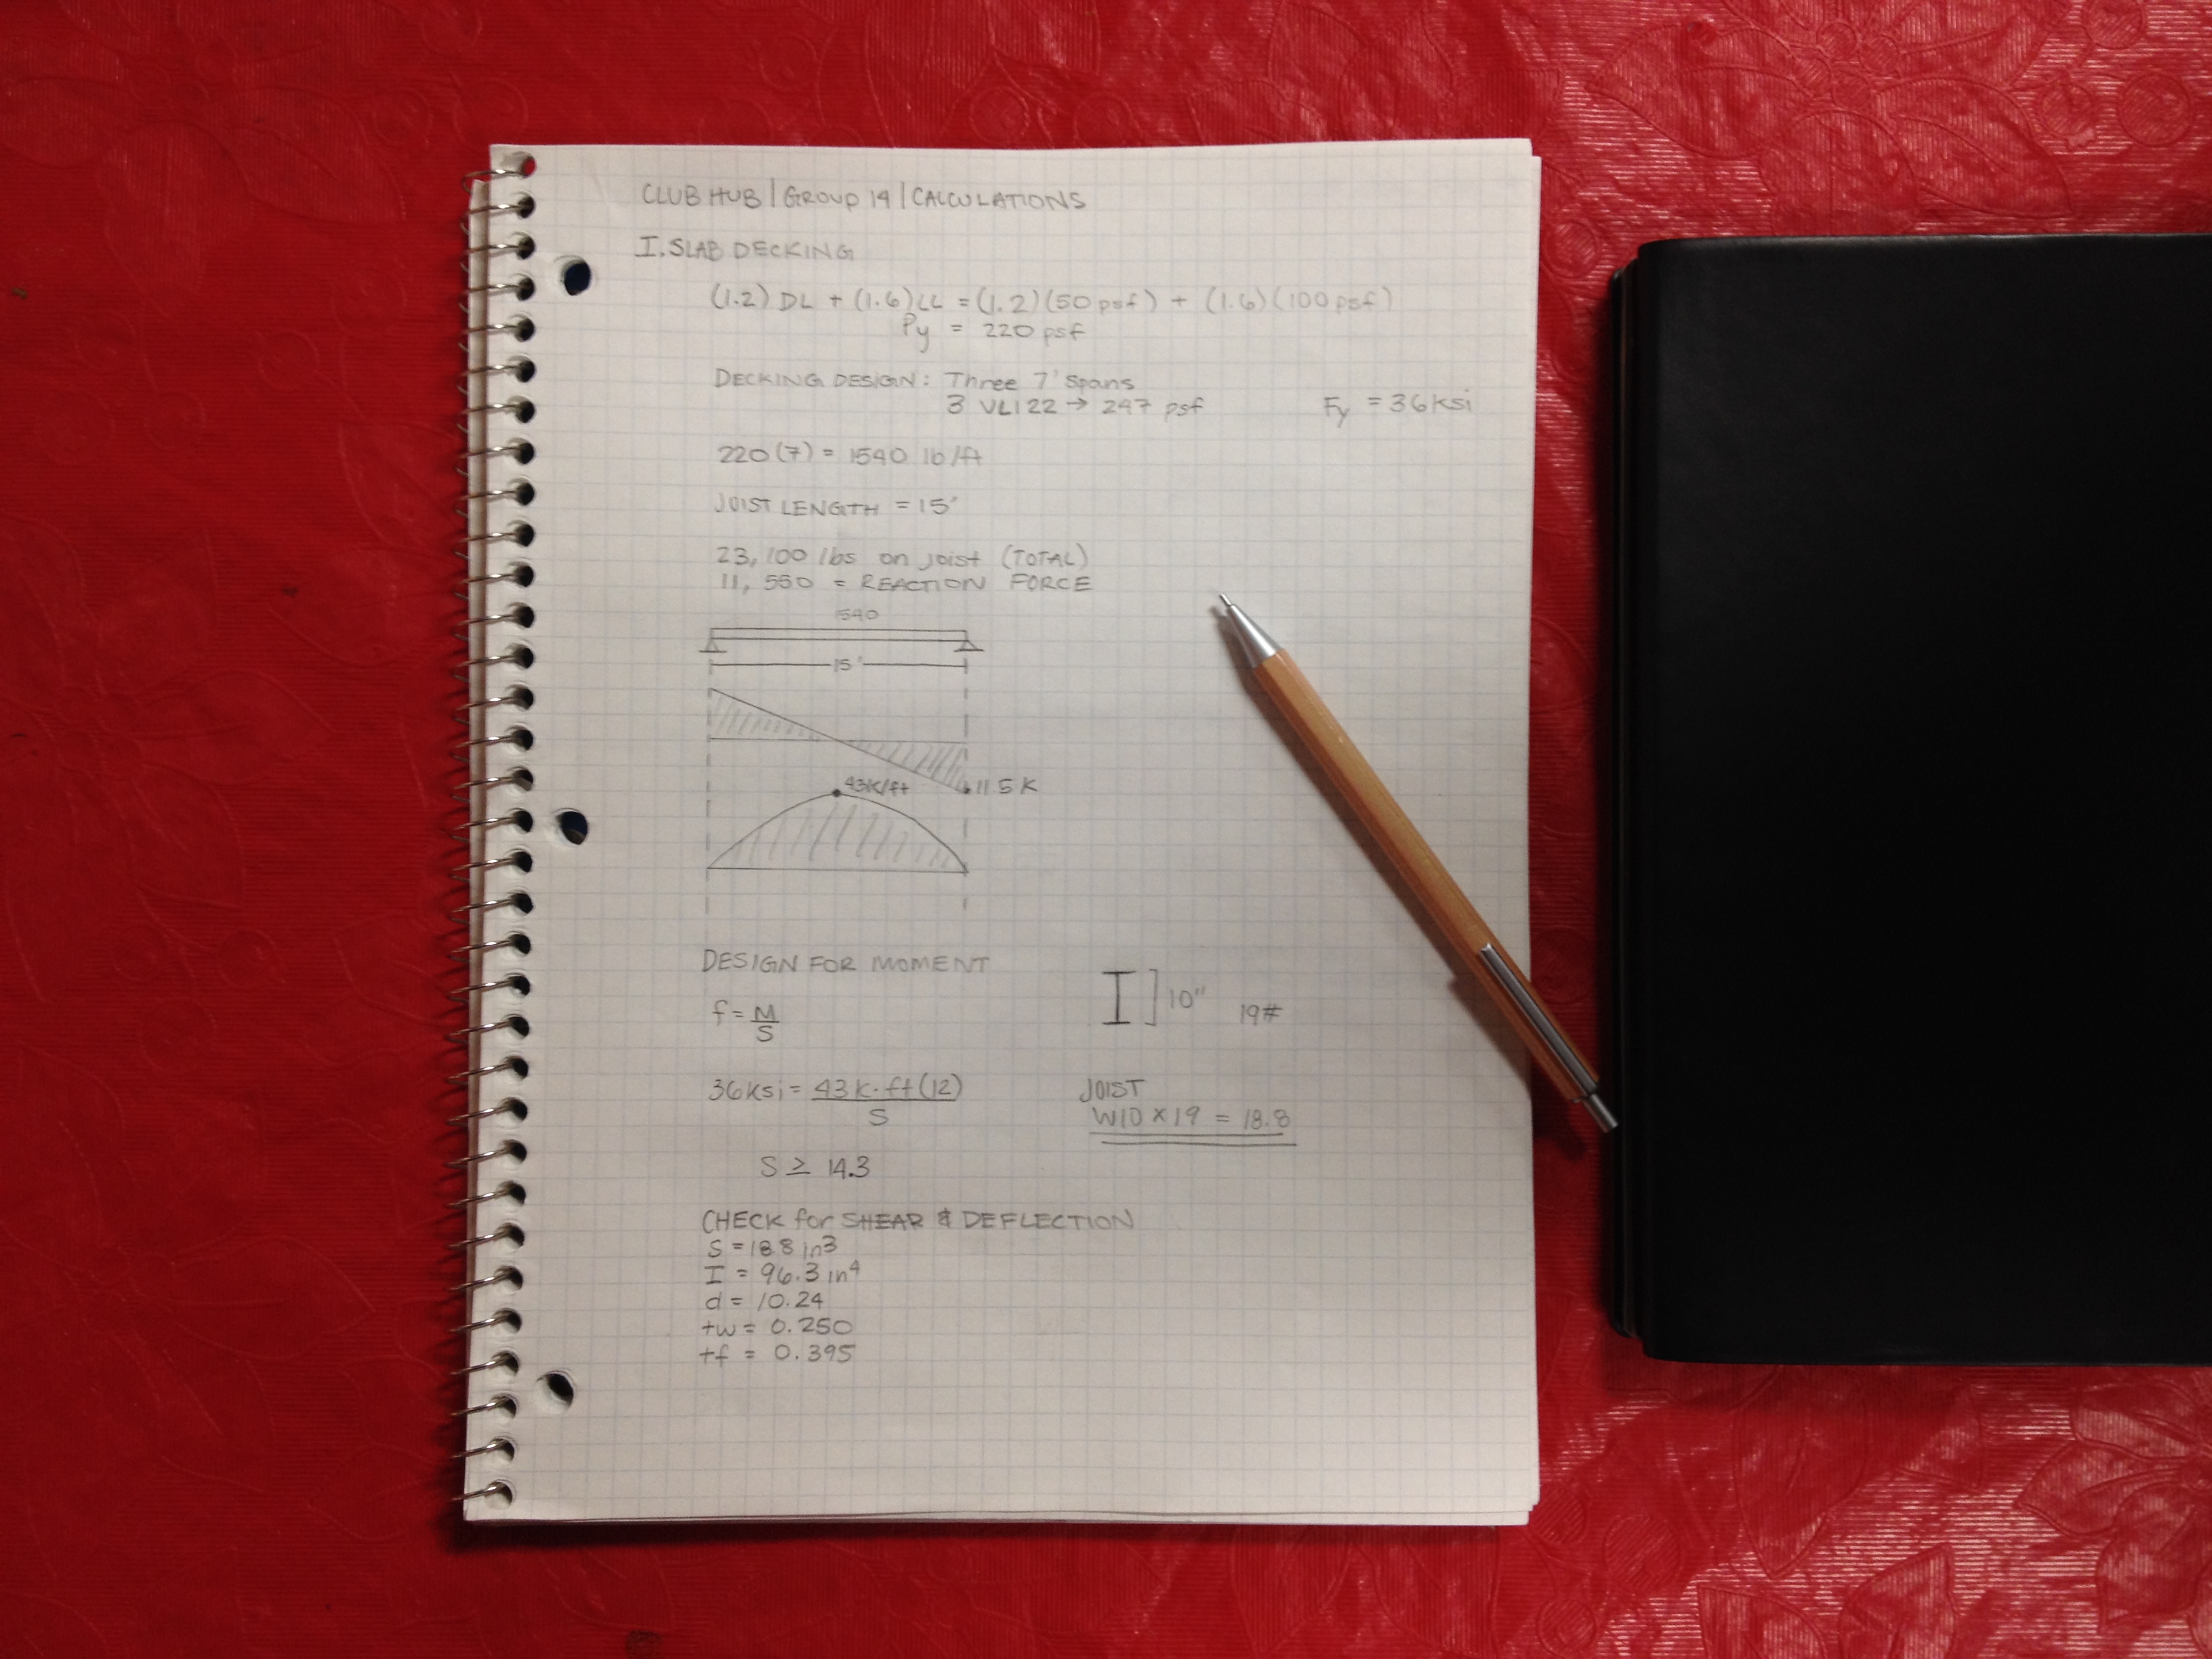 CLUB HUB | GROUP 14 | CALCULATIONS
I. SLAB DECKING
(1.2) DL + (1.6) LL = (1.2)(50 psf) + (1.6)(100 psf)
Py = 220 psf
DECKING DESIGN: Three 7' spans
3 VLI 22 → 247 psf Fy = 36 ksi
220(7) = 1540 lb/ft
JOIST LENGTH = 15'
23,100 lbs on joist (TOTAL)
11,550 = REACTION FORCE
1540
15'
11.5 K
43k/ft
DESIGN FOR MOMENT
f = M/S
I ] 10" 19#
36ksi = 43 k·ft(12)/S
JOIST
W10 x 19 = 18.8
S ≥ 14.3
CHECK for SHEAR & DEFLECTION
S = 18.8 in³
I = 96.3 in⁴
d = 10.24
tw = 0.250
tf = 0.395